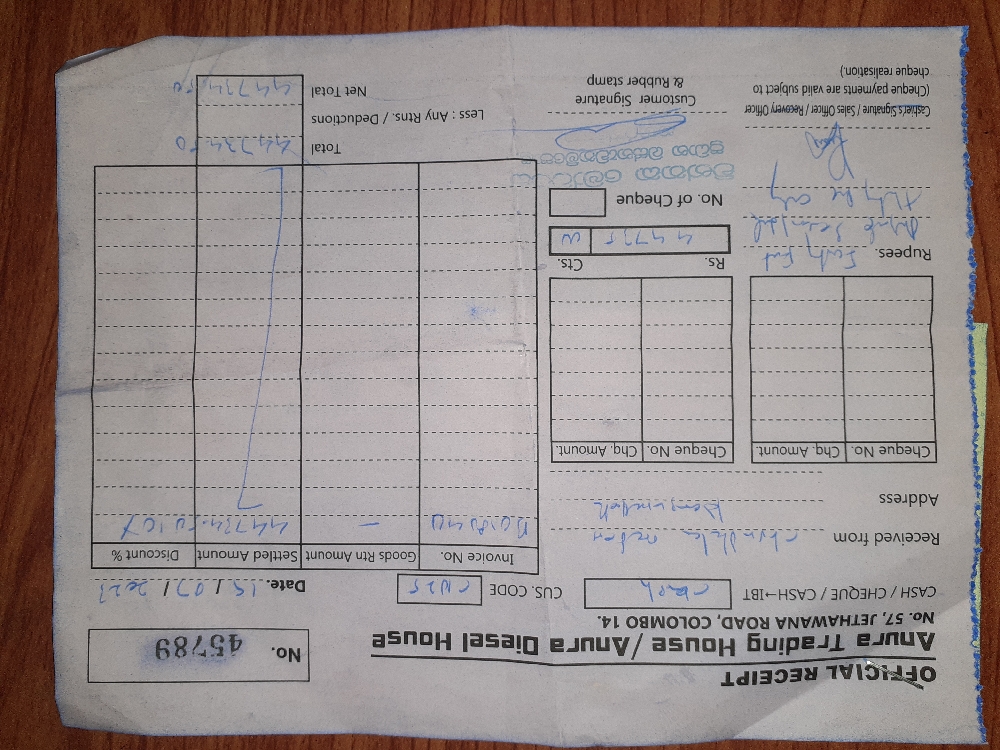 OFFICIAL RECEIPT
Anura Trading House / Anura Diesel House
No. 57, JETHAWANA ROAD, COLOMBO 14.
No. 45789
CASH / CHEQUE / CASH→IBT cash
CUS. CODE
Date. 15 / 07 / 2023
Received from
Address
Cheque No. Chq. Amount. Cheque No. Chq. Amount.
Invoice No. Goods Rtn Amount Settled Amount Discount %
— 44734.50 10%
Rs. Cts.
Rupees.
44735
No. of Cheque
Total 44734.50
Less : Any Rtns. / Deductions
Net Total 44734.50
Cashier's Signature / Sales Officer / Recovery Officer
(Cheque payments are valid subject to
cheque realisation.)
Customer Signature
& Rubber stamp